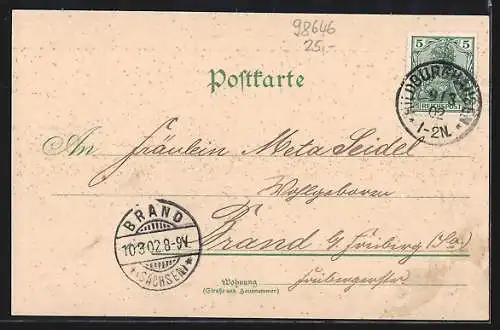 98646
25,-
Postkarte
5 5
REICHSPOST
HILDBURGHAUSEN
02
* 1-2N. *
An Fräulein Meta Seidel
Wohlgeboren
Brand b/ Freiberg (Sa.)
Freibergerstr.
BRAND
10 3 02 8-9V.
* (SACHSEN) *
Wohnung
(Straße und Hausnummer)